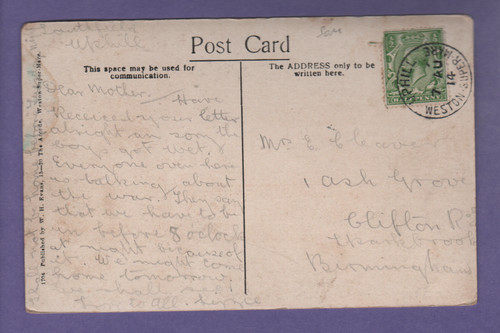 Southfield
Uphill
Post Card
This space may be used for
communication.
The ADDRESS only to be
written here.
UPHILL
7 AU
14
WESTON-SUPER-MARE
Dear Mother. Have
Received your letter
alright am sorry the
boys got wet.
Everyone over here
is talking about
the war. They say
that we have to be
in before 8 oclock
at night because of
it. We might come
home tomorrow
Love to All. Lizzie
Mrs E Cleaver
1 Ash Grove
Clifton Rd
Sparkbrook
Birmingham
1794 Published by W. H. Evans, The Arcade, Weston-Super-Mare.